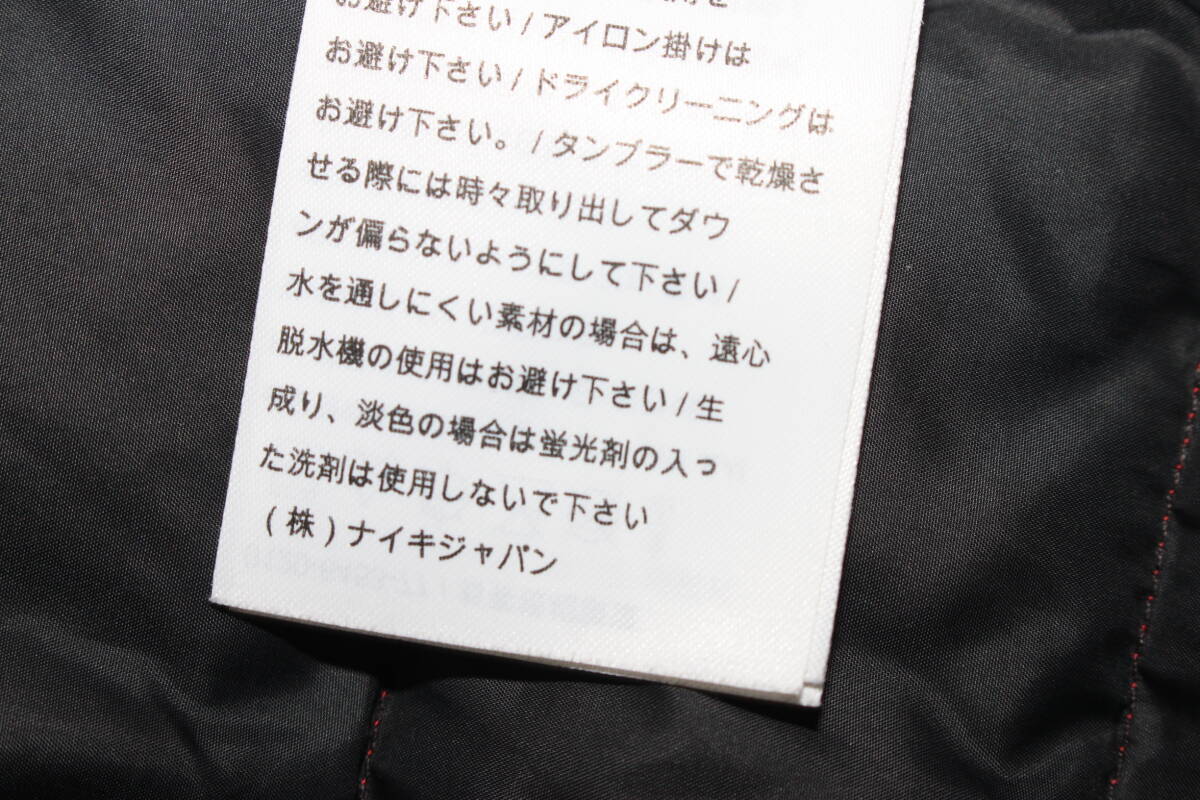 お避け下さい/アイロン掛けは
お避け下さい/ドライクリーニングは
お避け下さい。/タンブラーで乾燥さ
せる際には時々取り出してダウ
ンが偏らないようにして下さい/
水を通しにくい素材の場合は、遠心
脱水機の使用はお避け下さい/生
成り、淡色の場合は蛍光剤の入っ
た洗剤は使用しないで下さい
(株)ナイキジャパン